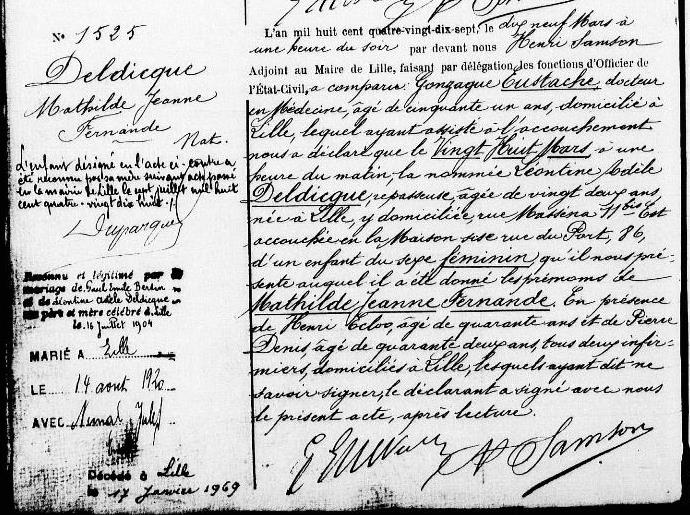 N° 1525
Deldicque
Mathilde Jeanne
Fernande
Nat.
L'enfant désigné en l'acte ci-contre a
été reconnu par sa mère suivant acte passé
en la mairie de Lille le sept juillet mil huit
cent quatre-vingt dix huit.
Reconnu et légitimé par le
mariage de Paul Emile Bertin
et de Léontine Adèle Deldicque
ses père et mère célébré à Lille
le 16 Juillet 1904
MARIÉ A Lille
LE 14 août 1920
AVEC
Décédé à Lille
le 17 Janvier 1969
L'an mil huit cent quatre-vingt-dix-sept, le dix neuf Mars à
une heure du soir par devant nous Henri Samson
Adjoint au Maire de Lille, faisant par délégation, les fonctions d'Officier de
l'État-Civil, a comparu Gonzague Eustache, docteur
en Médecine, âgé de cinquante un ans, domicilié à
Lille, lequel ayant assisté à l'accouchement
nous a déclaré que le Vingt Huit Mars à une
heure du matin, la nommée Léontine Adèle
Deldicque, repasseuse, âgée de vingt deux ans
née à Lille, y domiciliée, rue Masséna 11 bis Est
accouchée en la Maison sise rue du Port, 86,
d'un enfant du sexe féminin qu'il nous pré-
sente auquel il a été donné les prénoms de
Mathilde Jeanne Fernande. En présence
de Henri Ecloo, âgé de quarante ans et de Pierre
Denis, âgé de quarante deux ans, tous deux infir-
miers, domiciliés à Lille, lesquels ayant dit ne
savoir signer, le déclarant a signé avec nous
le présent acte, après lecture.
Samson